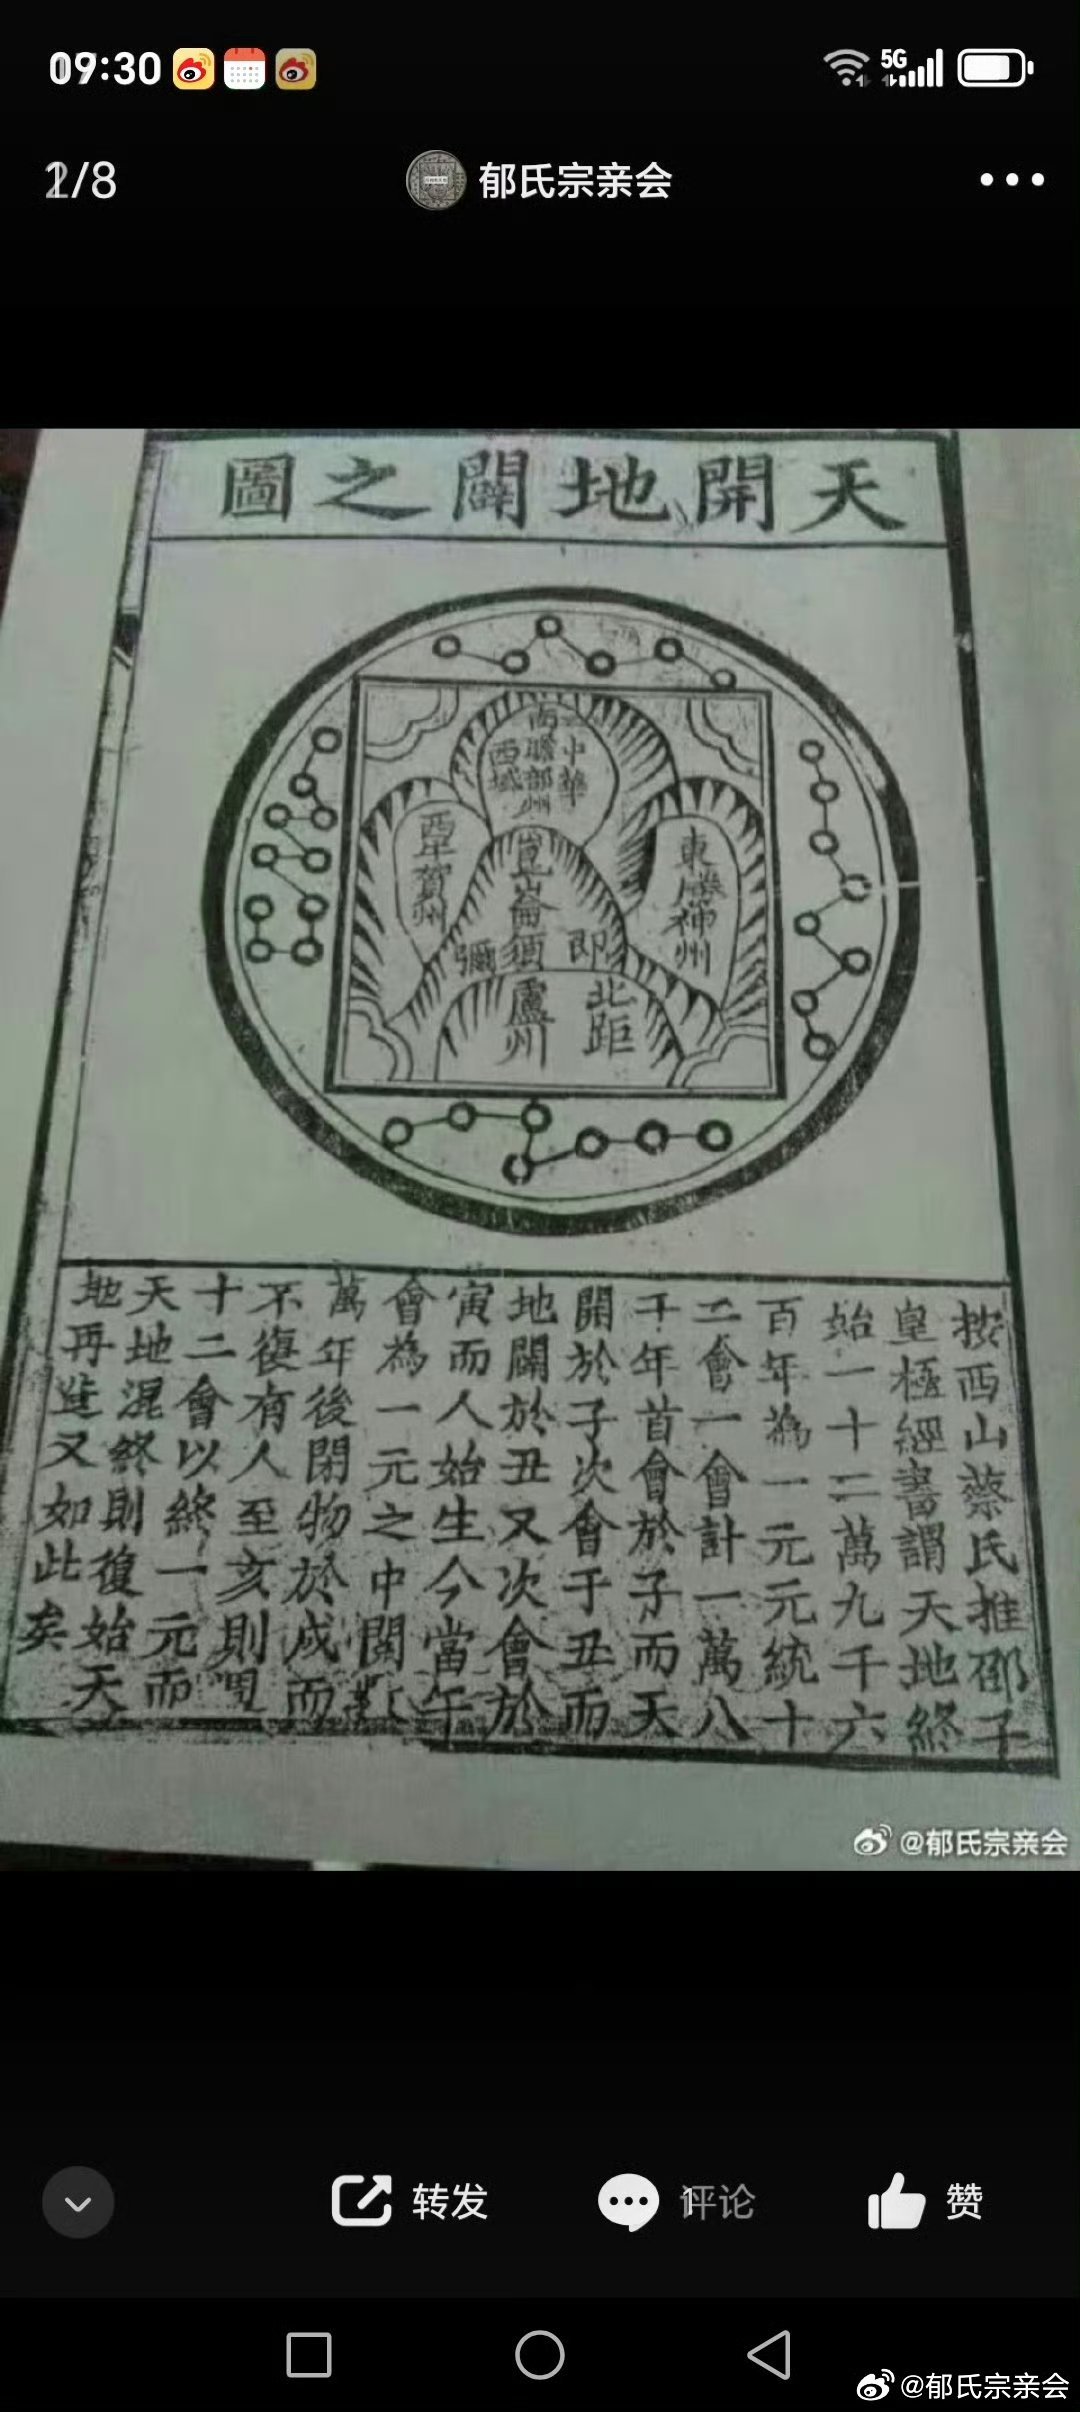 09:30
5G
/8
郁氏宗亲会
天開地闢之圖
中華
南贍部州
西域
東勝神州
西牛賀州
崑崙須
即
彌
北距
盧州
按西山蔡氏推邵子
皇極經書謂天地終
始一十二萬九千六
百年為一元元統十
二會一會計一萬八
千年首會於子而天
開於子次會于丑而
地闢於丑又次會於
寅而人始生今當午
會為一元之中閱
萬年後閉物於戌而
不復有人至亥則
十二會以終一元而
天地混終則復始天
地再造又如此矣
@郁氏宗亲会
转发
评论
赞
@郁氏宗亲会